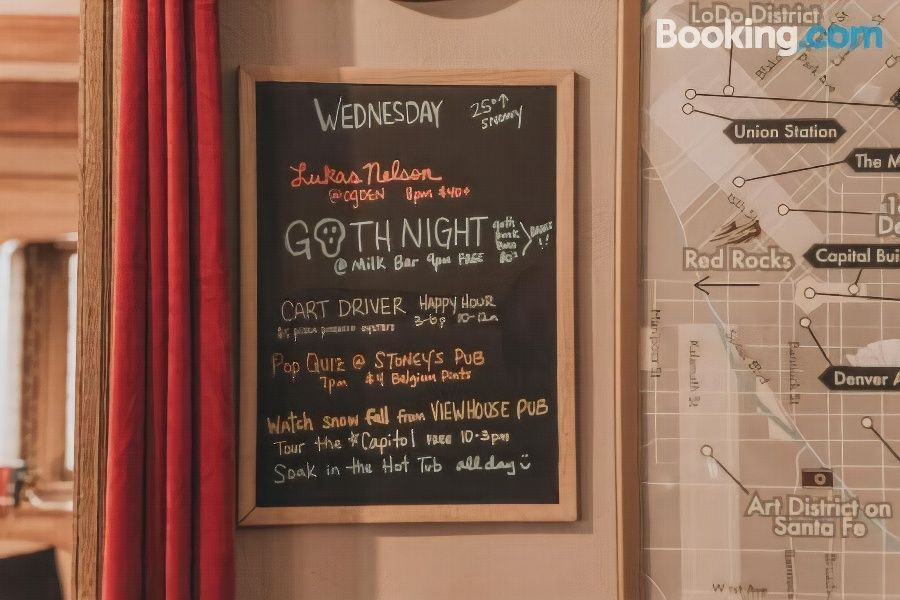 WEDNESDAY
25°↑
SNOWY
Lukas Nelson
@OGDEN 8pm $40+
GOTH NIGHT
@ Milk Bar 9pm FREE
CART DRIVER HAPPY HOUR
3-6p 10-12a
oysters
POP QUIZ @ STONEY'S PUB
7pm $4 Belgium Pints
Watch snow fall from VIEWHOUSE PUB
Tour the *Capitol FREE 10-3pm
Soak in the Hot Tub all day
LoDo District
Booking.com
Union Station
The M
Red Rocks
Capital Bui
Denver A
Art District on
Santa Fe